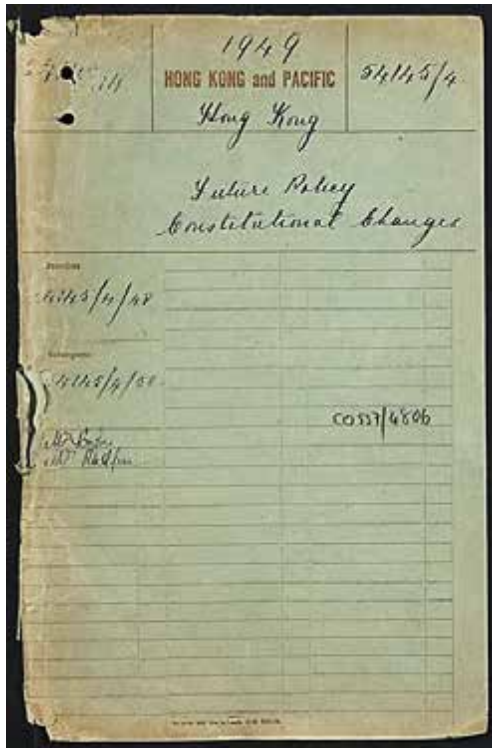 1949
HONG KONG and PACIFIC
54145/4
Hong Kong
Future Policy
Constitutional Changes
Previous
54145/4/48
Subsequent
54145/4/50
CO537/4806
Mr
Mr